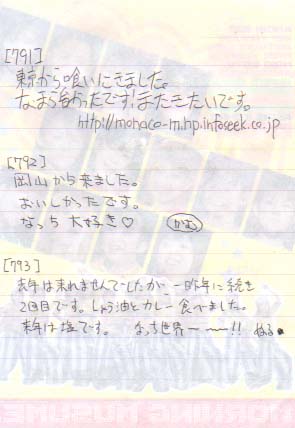 [791]
東京から喰いにきました。
なまら旨かったです!またきたいです。
http://monaco-m.hp.infoseek.co.jp
[792]
岡山から来ました。
おいしかったです。
なっち 大好き♡ かむ
[793]
去年は来れませんでしたが、一昨年に続き
2回目です。しょう油とカレー食べました。
来年は塩です。 なっち世界一〜〜!! ぬる
MORNING MUSUME